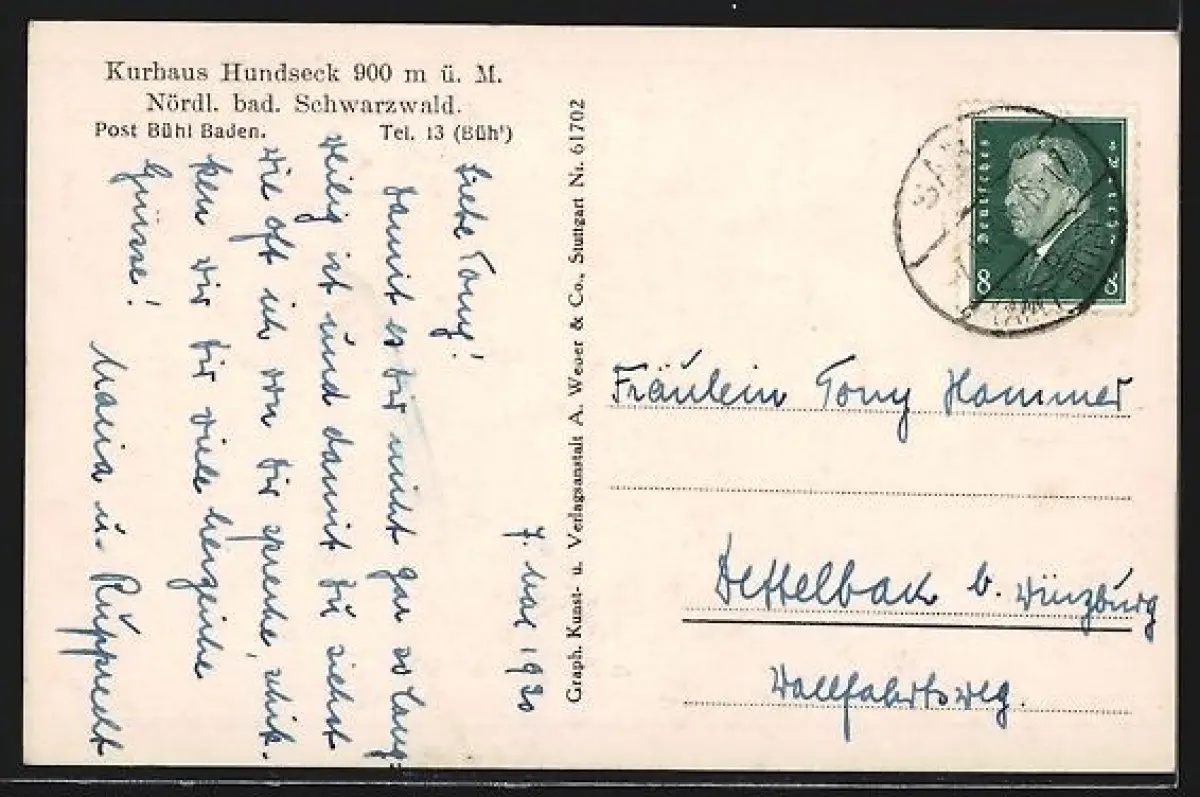 Kurhaus Hundseck 900 m ü. M.
Nördl. bad. Schwarzwald.
Post Bühl Baden. Tel. 13 (Bühl)
7. Mai 1930
Liebe Tony!
Damit es dir nicht gar so lang-
weilig ist und damit du siehst
wie oft ich von dir spreche, schik-
ken wir dir viele herzliche
Grüsse!
Maria u. Rupprecht
Graph. Kunst- u. Verlagsanstalt A. Weber & Co., Stuttgart Nr. 61702
Deutsches Reich
8 8
Fräulein Tony Hammer
Dettelbach b. Würzburg
Wallfahrtsweg.